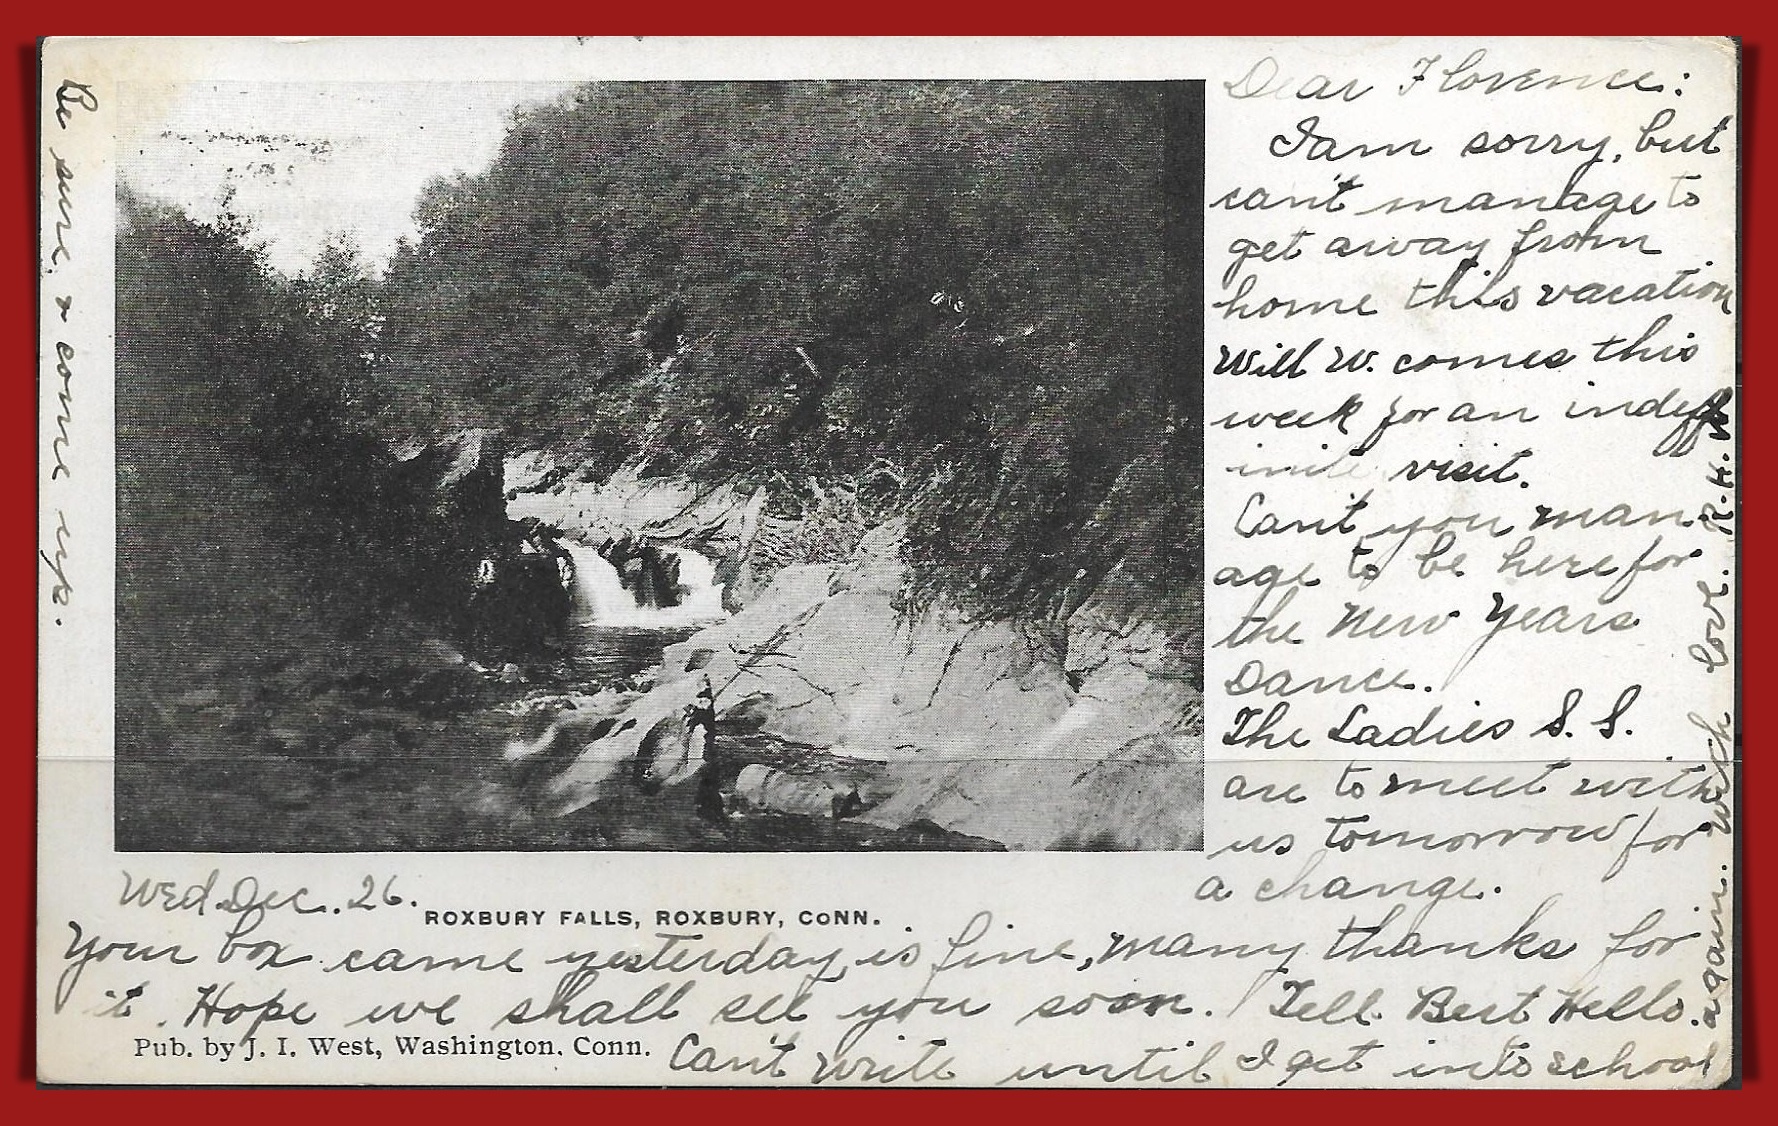 Dear Florence:
I am sorry, but
can't manage to
get away from
home this vacation
Will W. comes this
week for an indef
inite visit.
Can't you man-
age to be here for
the New Years
Dance.
The Ladies S. S.
are to meet with
us tomorrow for
a change.
Wed. Dec. 26.
ROXBURY FALLS, ROXBURY, CONN.
Your box came yesterday, is fine, many thanks for
it. Hope we shall see you soon. Tell Bert Hello.
Pub. by J. I. West, Washington, Conn.
Can't write until I get into school
again. Much love. R.H.
Be sure & come up.